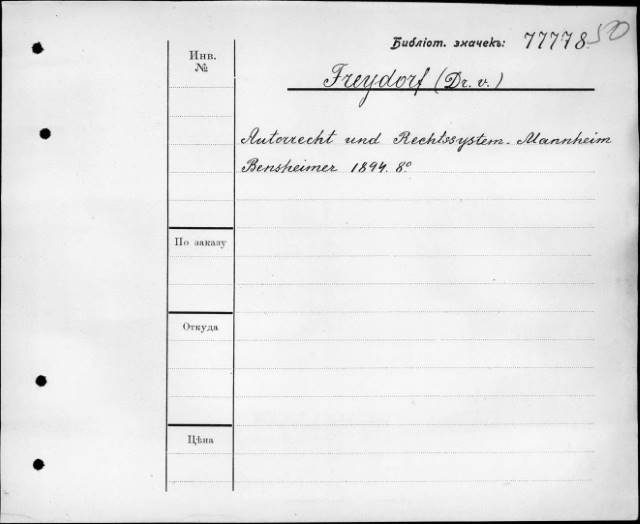 Библіот. значекъ: 77778 50
Инв.
№
Freydorf (Dr. v.)
Autorrecht und Rechtssystem. Mannheim
Bensheimer 1894. 8°
По заказу
Откуда
Цѣна